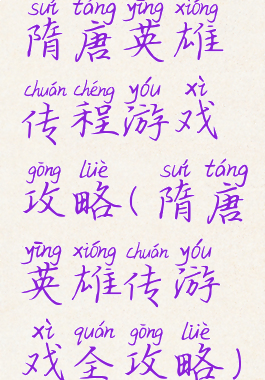 suí táng yīng xióng
隋唐英雄
chuán chéng yóu xì
传程游戏
gōng lüè suí táng
攻略(隋唐
yīng xióng chuán yóu
英雄传游
xì quán gōng lüè
戏全攻略)